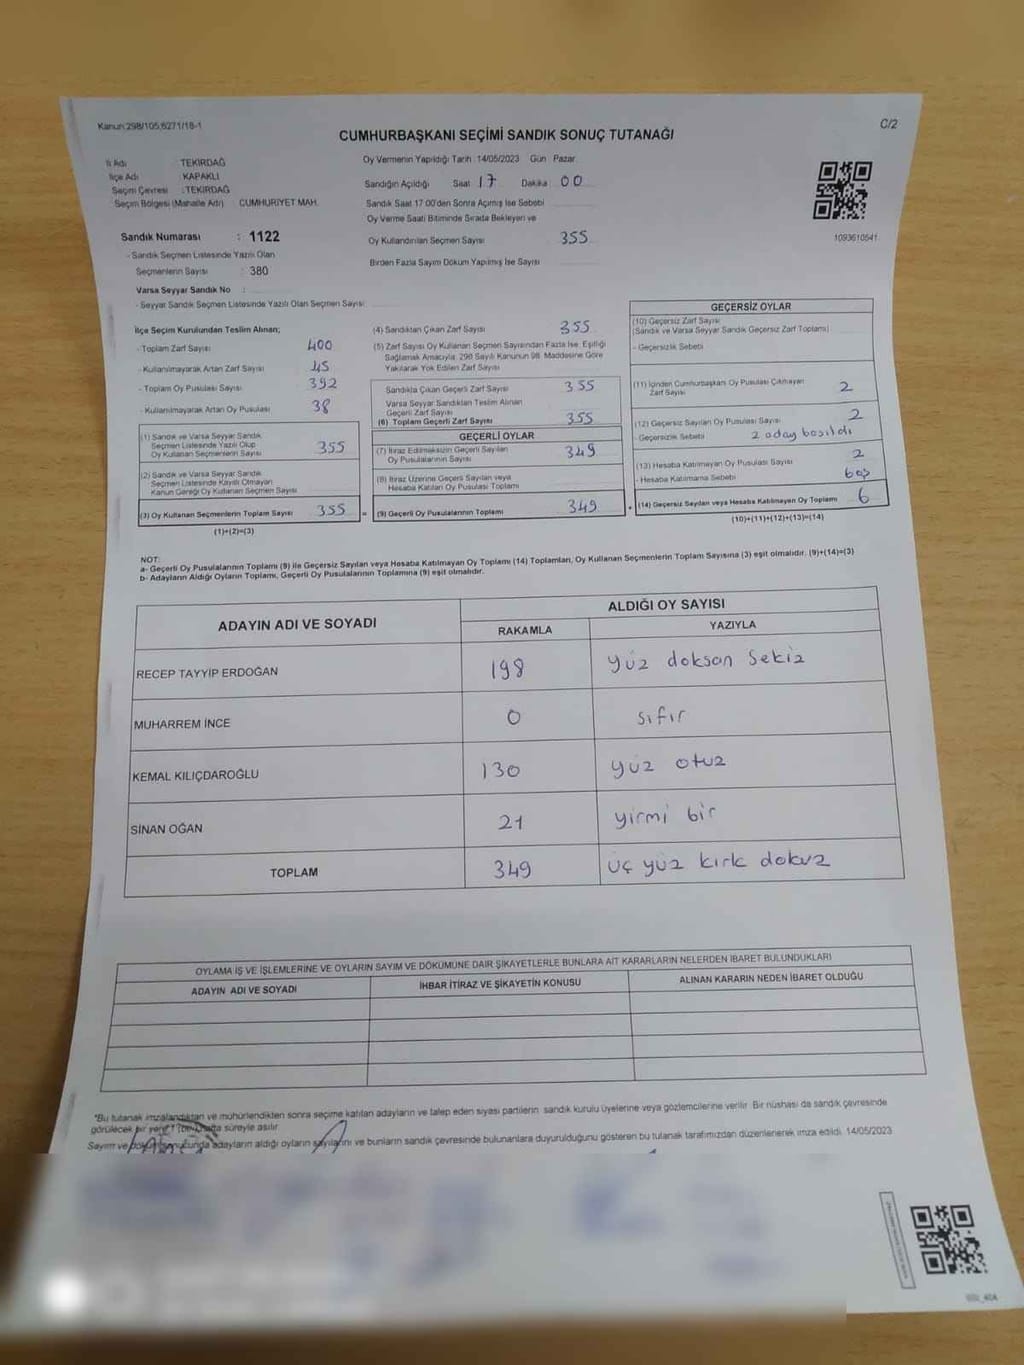 Kanun:298/105;6271/18-1
C/2
CUMHURBAŞKANI SEÇİMİ SANDIK SONUÇ TUTANAĞI
İl Adı : TEKİRDAĞ
İlçe Adı : KAPAKLI
Seçim Çevresi : TEKİRDAĞ
Seçim Bölgesi (Mahalle Adı) : CUMHURİYET MAH.
Oy Vermenin Yapıldığı Tarih : 14/05/2023 Gün Pazar
Sandığın Açıldığı Saat 17 Dakika 00
Sandık Saat 17:00'den Sonra Açımış İse Sebebi
Oy Verme Saati Bitiminde Sırada Bekleyen ve
Oy Kullandırılan Seçmen Sayısı 355
Birden Fazla Sayım Döküm Yapılmış İse Sayısı
1093610541
Sandık Numarası : 1122
- Sandık Seçmen Listesinde Yazılı Olan
Seçmenlerin Sayısı : 380
Varsa Seyyar Sandık No :
- Seyyar Sandık Seçmen Listesinde Yazılı Olan Seçmen Sayısı
İlçe Seçim Kurulundan Teslim Alınan;
- Toplam Zarf Sayısı 400
- Kullanılmayarak Artan Zarf Sayısı 45
- Toplam Oy Pusulası Sayısı 392
- Kullanılmayarak Artan Oy Pusulası 38
(1) Sandık ve Varsa Seyyar Sandık
Seçmen Listesinde Yazılı Olup
Oy Kullanan Seçmenlerin Sayısı 355
(2) Sandık ve Varsa Seyyar Sandık
Seçmen Listesinde Kayıtlı Olmayan
Kanun Gereği Oy Kullanan Seçmen Sayısı
(3) Oy Kullanan Seçmenlerin Toplam Sayısı 355 =
(1)+(2)=(3)
(4) Sandıktan Çıkan Zarf Sayısı 355
(5) Zarf Sayısı Oy Kullanan Seçmen Sayısından Fazla İse, Eşitliği
Sağlamak Amacıyla 298 Sayılı Kanunun 98. Maddesine Göre
Yakılarak Yok Edilen Zarf Sayısı
Sandıkta Çıkan Geçerli Zarf Sayısı 355
Varsa Seyyar Sandıktan Teslim Alınan
Geçerli Zarf Sayısı
(6) Toplam Geçerli Zarf Sayısı 355
GEÇERLİ OYLAR
(7) İtiraz Edilmeksizin Geçerli Sayılan
Oy Pusulalarının Sayısı 349
(8) İtiraz Üzerine Geçerli Sayılan veya
Hesaba Katılan Oy Pusulası Toplamı
(9) Geçerli Oy Pusulalarının Toplamı 349 +
GEÇERSİZ OYLAR
(10) Geçersiz Zarf Sayısı
(Sandık ve Varsa Seyyar Sandık Geçersiz Zarf Toplamı)
- Geçersizlik Sebebi
(11) İçinden Cumhurbaşkanı Oy Pusulası Çıkmayan
Zarf Sayısı 2
(12) Geçersiz Sayılan Oy Pusulası Sayısı 2
- Geçersizlik Sebebi 2 aday basıldı
(13) Hesaba Katılmayan Oy Pusulası Sayısı 2
- Hesaba Katılmama Sebebi boş
(14) Geçersiz Sayılan veya Hesaba Katılmayan Oy Toplamı 6
(10)+(11)+(12)+(13)=(14)
NOT:
a- Geçerli Oy Pusulalarının Toplamı (9) ile Geçersiz Sayılan veya Hesaba Katılmayan Oy Toplamı (14) Toplamları, Oy Kullanan Seçmenlerin Toplam Sayısına (3) eşit olmalıdır. (9)+(14)=(3)
b- Adayların Aldığı Oyların Toplamı, Geçerli Oy Pusulalarının Toplamına (9) eşit olmalıdır.
ADAYIN ADI VE SOYADI
ALDIĞI OY SAYISI
RAKAMLA YAZIYLA
RECEP TAYYİP ERDOĞAN 198 yüz doksan sekiz
MUHARREM İNCE 0 sıfır
KEMAL KILIÇDAROĞLU 130 yüz otuz
SİNAN OĞAN 21 yirmi bir
TOPLAM 349 üç yüz kırk dokuz
OYLAMA İŞ VE İŞLEMLERİNE VE OYLARIN SAYIM VE DÖKÜMÜNE DAİR ŞİKAYETLERLE BUNLARA AİT KARARLARIN NELERDEN İBARET BULUNDUKLARI
ADAYIN ADI VE SOYADI İHBAR İTİRAZ VE ŞİKAYETİN KONUSU ALINAN KARARIN NEDEN İBARET OLDUĞU
"Bu tutanak imzalandıktan ve mühürlendikten sonra seçime katılan adayların ve talep eden siyasi partilerin sandık kurulu üyelerine veya gözlemcilerine verilir. Bir nüshası da sandık çevresinde
görülecek bir yere süreyle asılır.
Sayım ve adayların aldığı oyların sayılarını ve bunların sandık çevresinde bulunanlara duyurulduğunu gösteren bu tutanak tarafımızdan düzenlenerek imza edildi. 14/05/2023